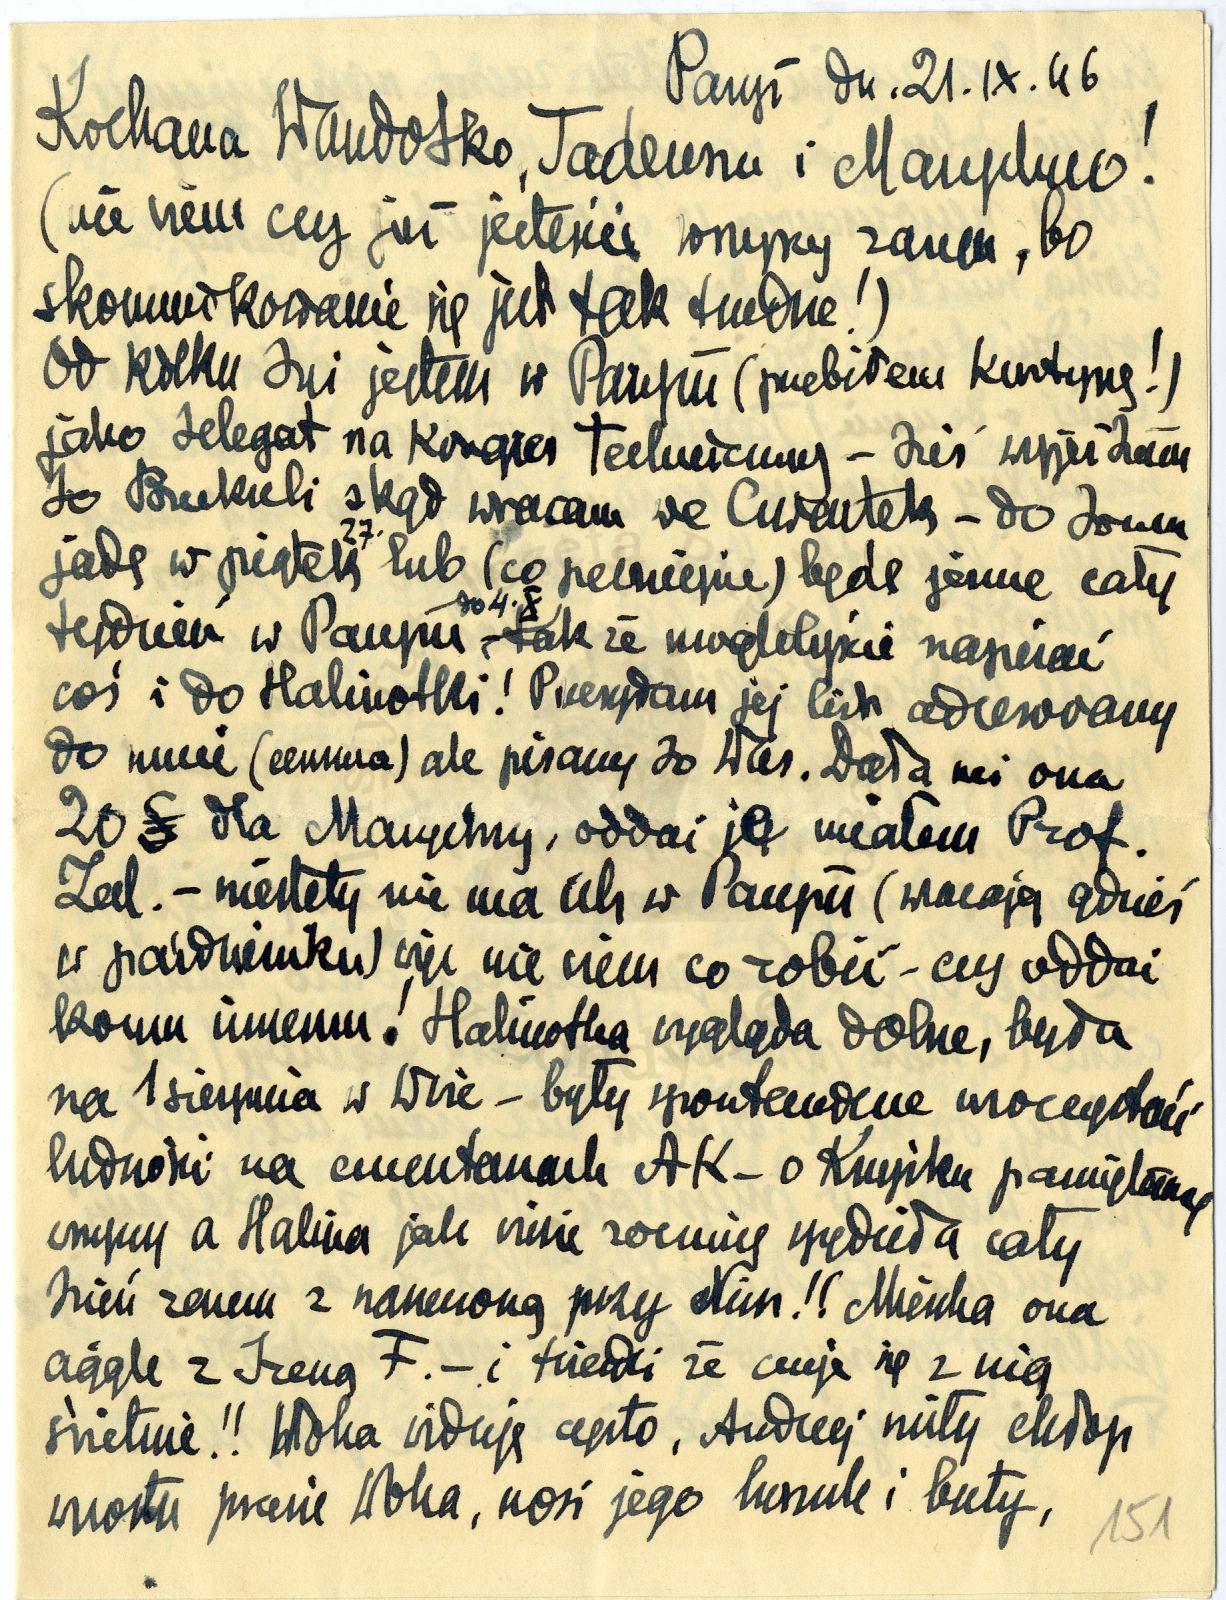 Paryż dn. 21.IX.46
Kochana Wandośko, Tadeuszu i Marychno!
(nie wiem czy już jesteście wszyscy razem, bo
skomunikowanie się jest tak trudne!)
Od kilku dni jestem w Paryżu (przebiłem kurtynę!)
jako delegat na Kongres Techniczny – dziś wyjeżdżam
do Brukseli skąd wracam we Czwartek – do domu
jadę w piątek 27. lub (co pewniejsze) będę jeszcze cały
tydzień w Paryżu do 4.X – tak że moglibyście napisać
coś i do Halinośki! Przesyłam jej list adresowany
do mnie (cenzura) ale pisany do Was. Dała mi ona
20 $ dla Marychny, oddać je miałem Prof.
Zal. – niestety nie ma ich w Paryżu (wracają gdzieś
w październiku) więc nie wiem co robić – czy oddać
komu innemu! Halinośka wygląda dobrze, była
na 1 sierpnia w Wwie – były spontaniczne uroczystości
ludności na cmentarzach AK – o Krzysiku pamiętamy
wszyscy a Halina jak wiesz rocznicę spędziła cały
dzień razem z narzeczoną przy Nim!! Mieszka ona
ciągle z Ireną F. – i twierdzi że czuje się z nią
świetnie!! Wołka widuję często, Andrzej miły chłop
wzrostu prawie Wołka, nosi jego koszule i buty,
151